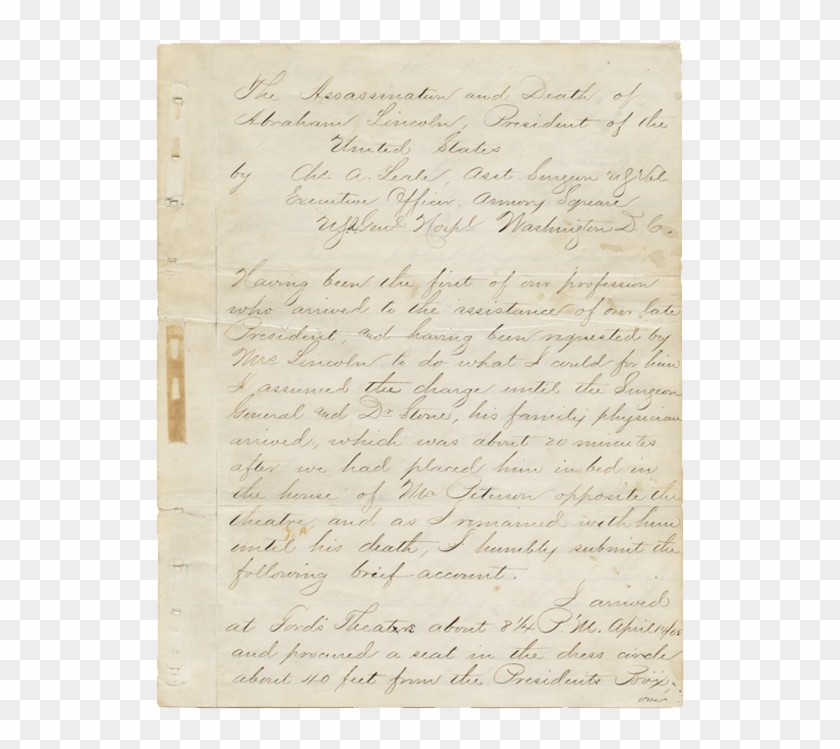 The Assassination and Death of
Abraham Lincoln, President of the
United States
by Chs. A. Leale, Asst. Surgeon U.S. Vol.
Executive Officer Armory Square
U.S. Genl Hospl Washington D. C.
Having been the first of our profession
who arrived to the assistance of our late
President, and having been requested by
Mrs. Lincoln to do what I could for him
I assumed the charge until the Surgeon
General and Dr Stone, his family physician
arrived, which was about 20 minutes
after we had placed him in bed in
the house of Mr Peterson opposite the
theatre, and as I remained with him
until his death, I humbly submit the
following brief account.
I arrived
at Ford's Theatre about 8¼ P.M. April 14/65
and procured a seat in the dress circle
about 40 feet from the Presidents Box.